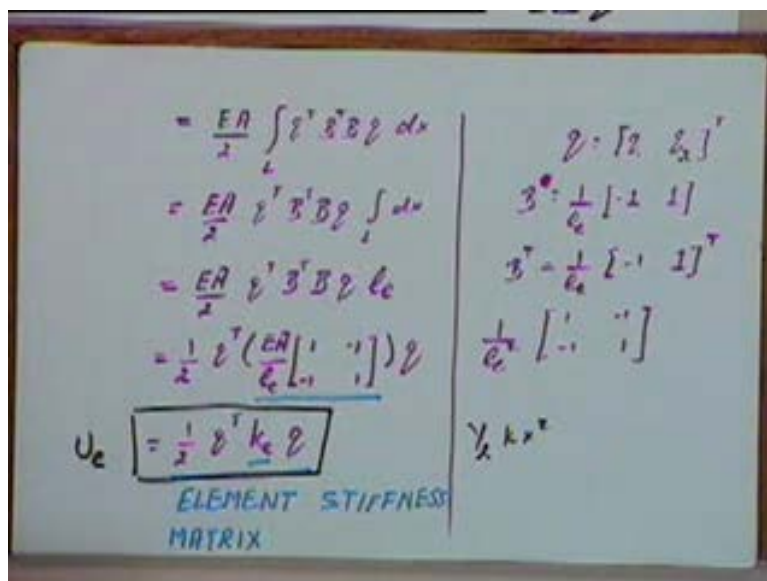 = EA/2 ∫_L q^T B^T B q dx
= EA/2 q^T B^T B q ∫_L dx
= EA/2 q^T B^T B q l_e
= 1/2 q^T ( EA/l_e [ 1 -1 ; -1 1 ] ) q
U_e = 1/2 q^T k_e q
ELEMENT STIFFNESS
MATRIX
q = [q_1 q_2]^T
B = 1/l_e [-1 1]
B^T = 1/l_e [-1 1]^T
1/l_e^2 [ 1 -1 ; -1 1 ]
1/2 k x^2